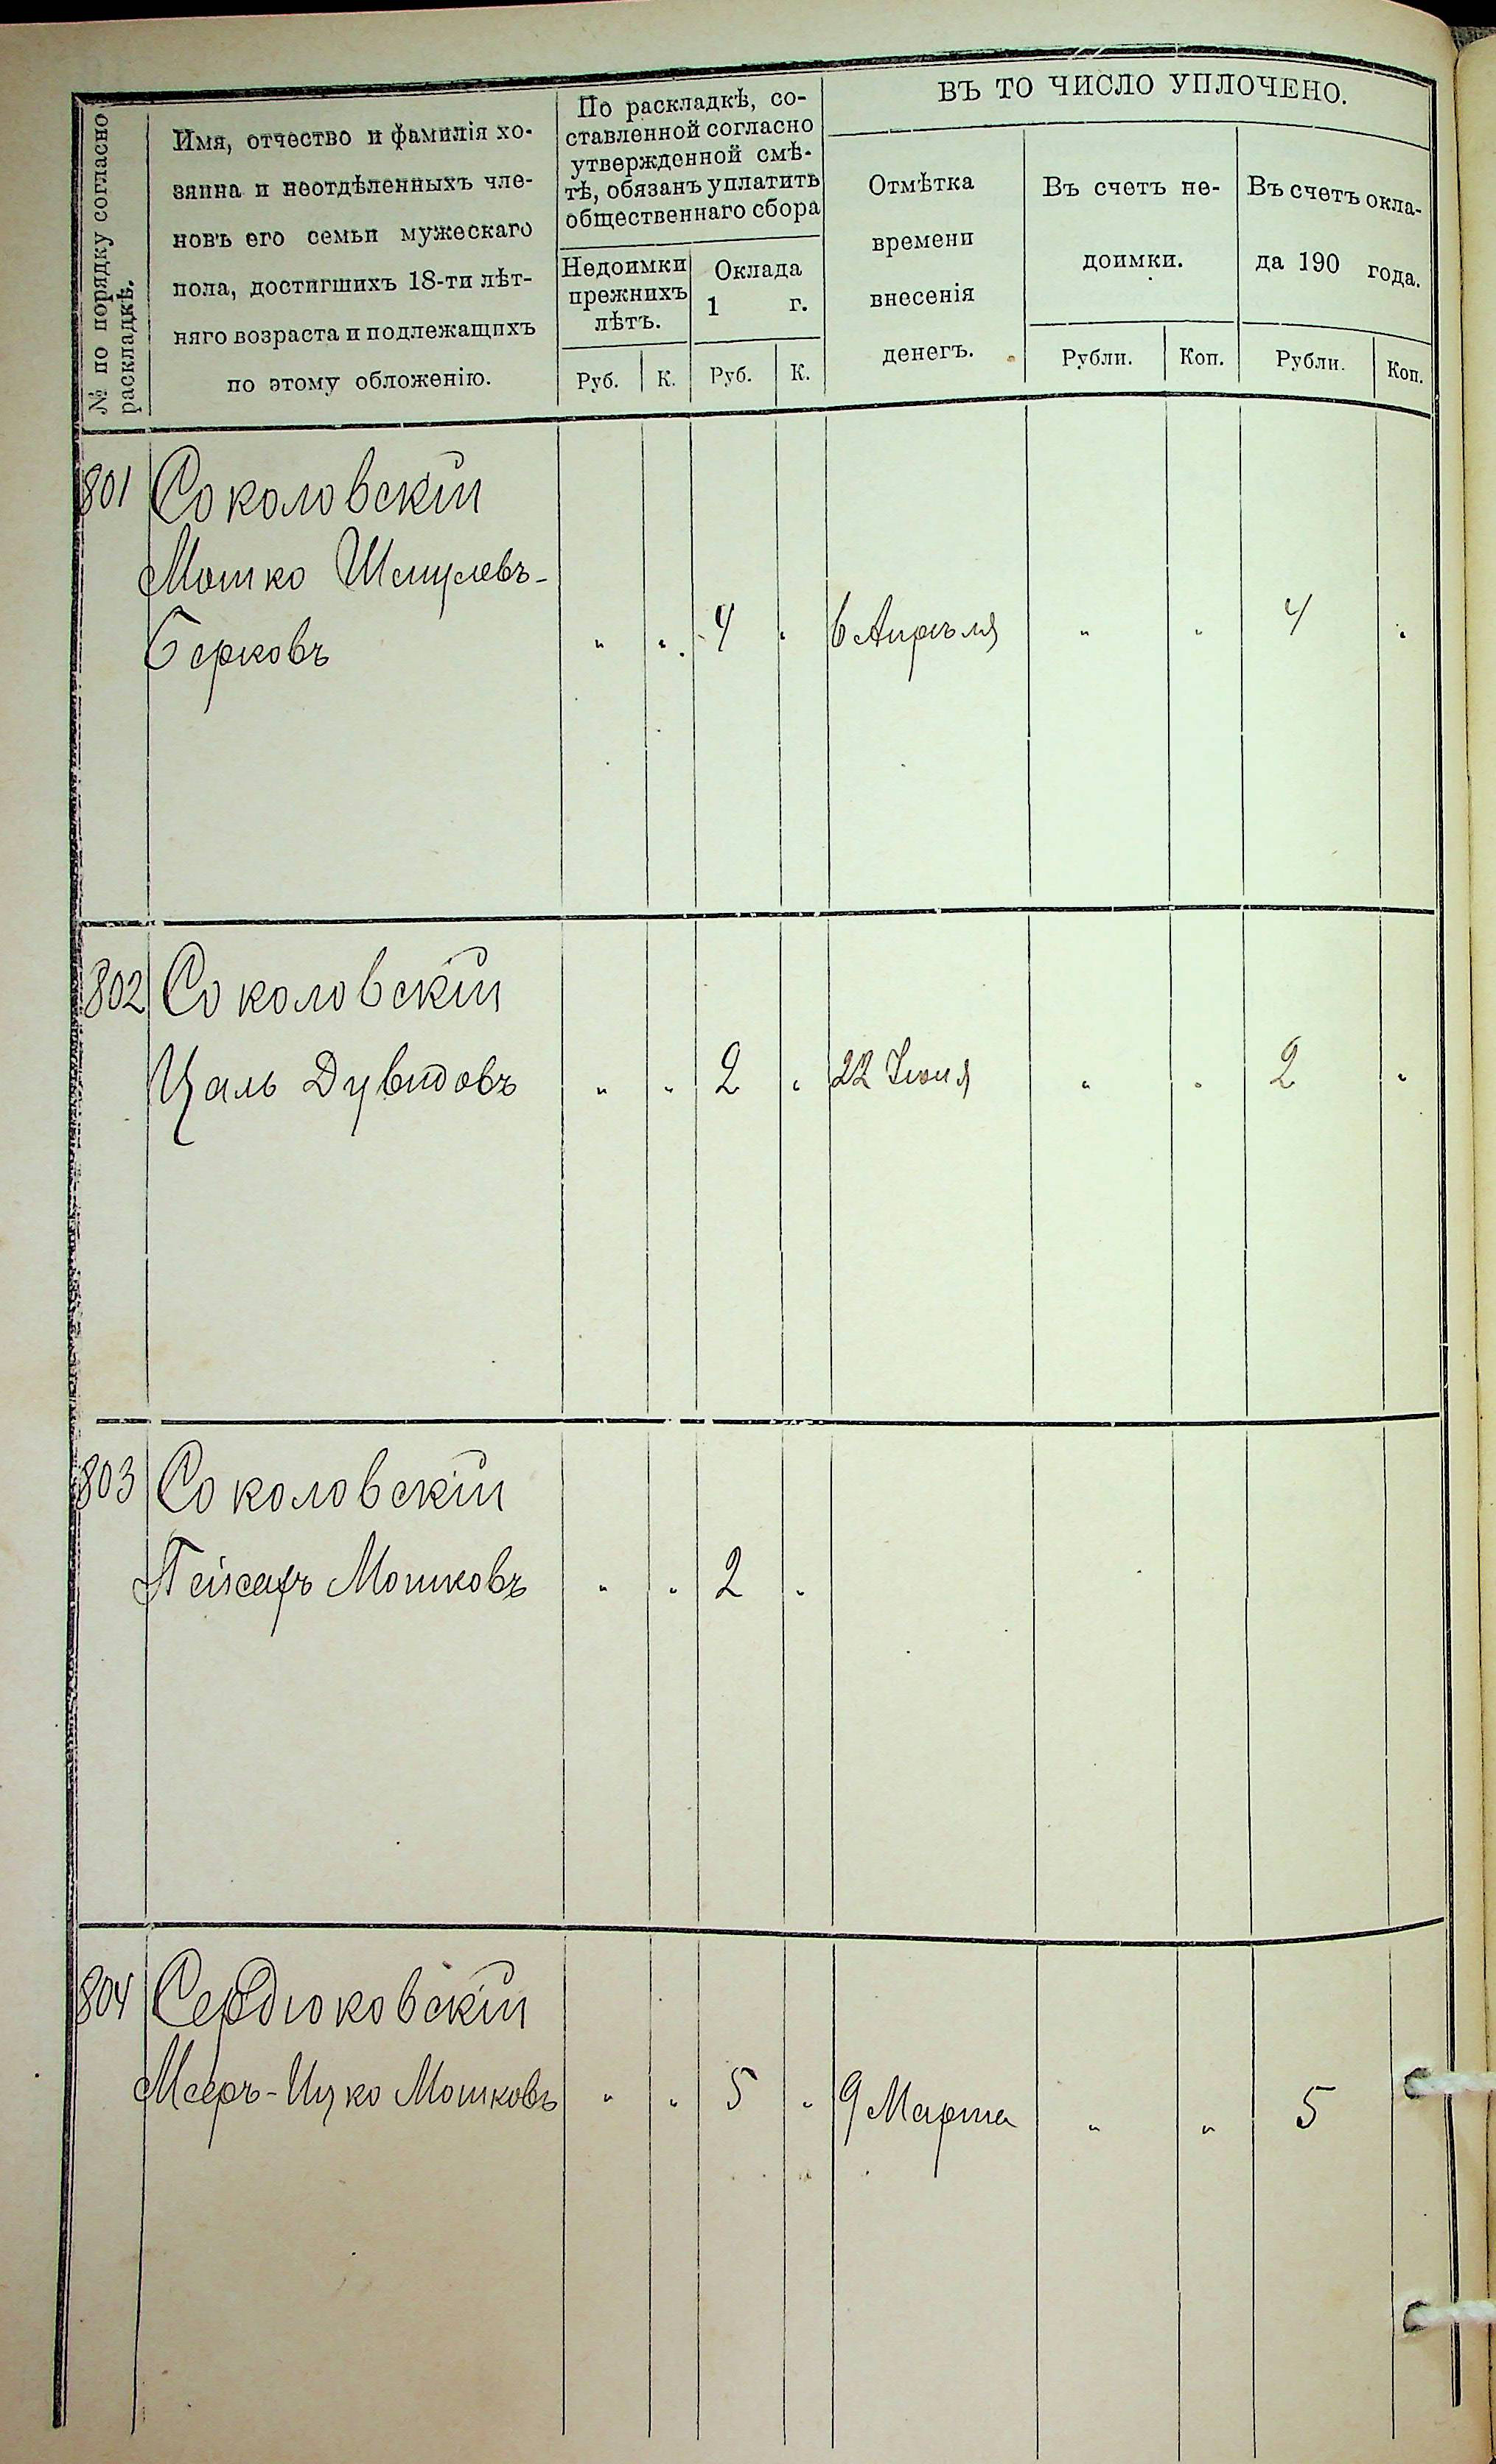 № по порядку согласно
раскладкѣ.
Имя, отчество и фамилія хо-
зяина и неотдѣленныхъ чле-
новъ его семьи мужескаго
пола, достигшихъ 18-ти лѣт-
няго возраста и подлежащихъ
по этому обложенію.
По раскладкѣ, со-
ставленной согласно
утвержденной смѣ-
тѣ, обязанъ уплатить
общественнаго сбора
Недоимки
прежнихъ
лѣтъ.
Оклада
1 г.
Руб. К. Руб. К.
ВЪ ТО ЧИСЛО УПЛОЧЕНО.
Отмѣтка
времени
внесенія
денегъ.
Въ счетъ не-
доимки.
Въ счетъ окла-
да 190 года.
Рубли. Коп. Рубли. Коп.
801 Соколовскій
Мошко Шмулевъ-
Берковъ " " 4 " 6 Апрѣля " " 4 "
802 Соколовскій
Цаль Дувидовъ " " 2 " 22 Іюня " " 2 "
803 Соколовскій
Мошковъ " " 2 "
804 Сердюковскій
Мееръ-Ицко Мошковъ " " 5 " 9 Марта " " 5